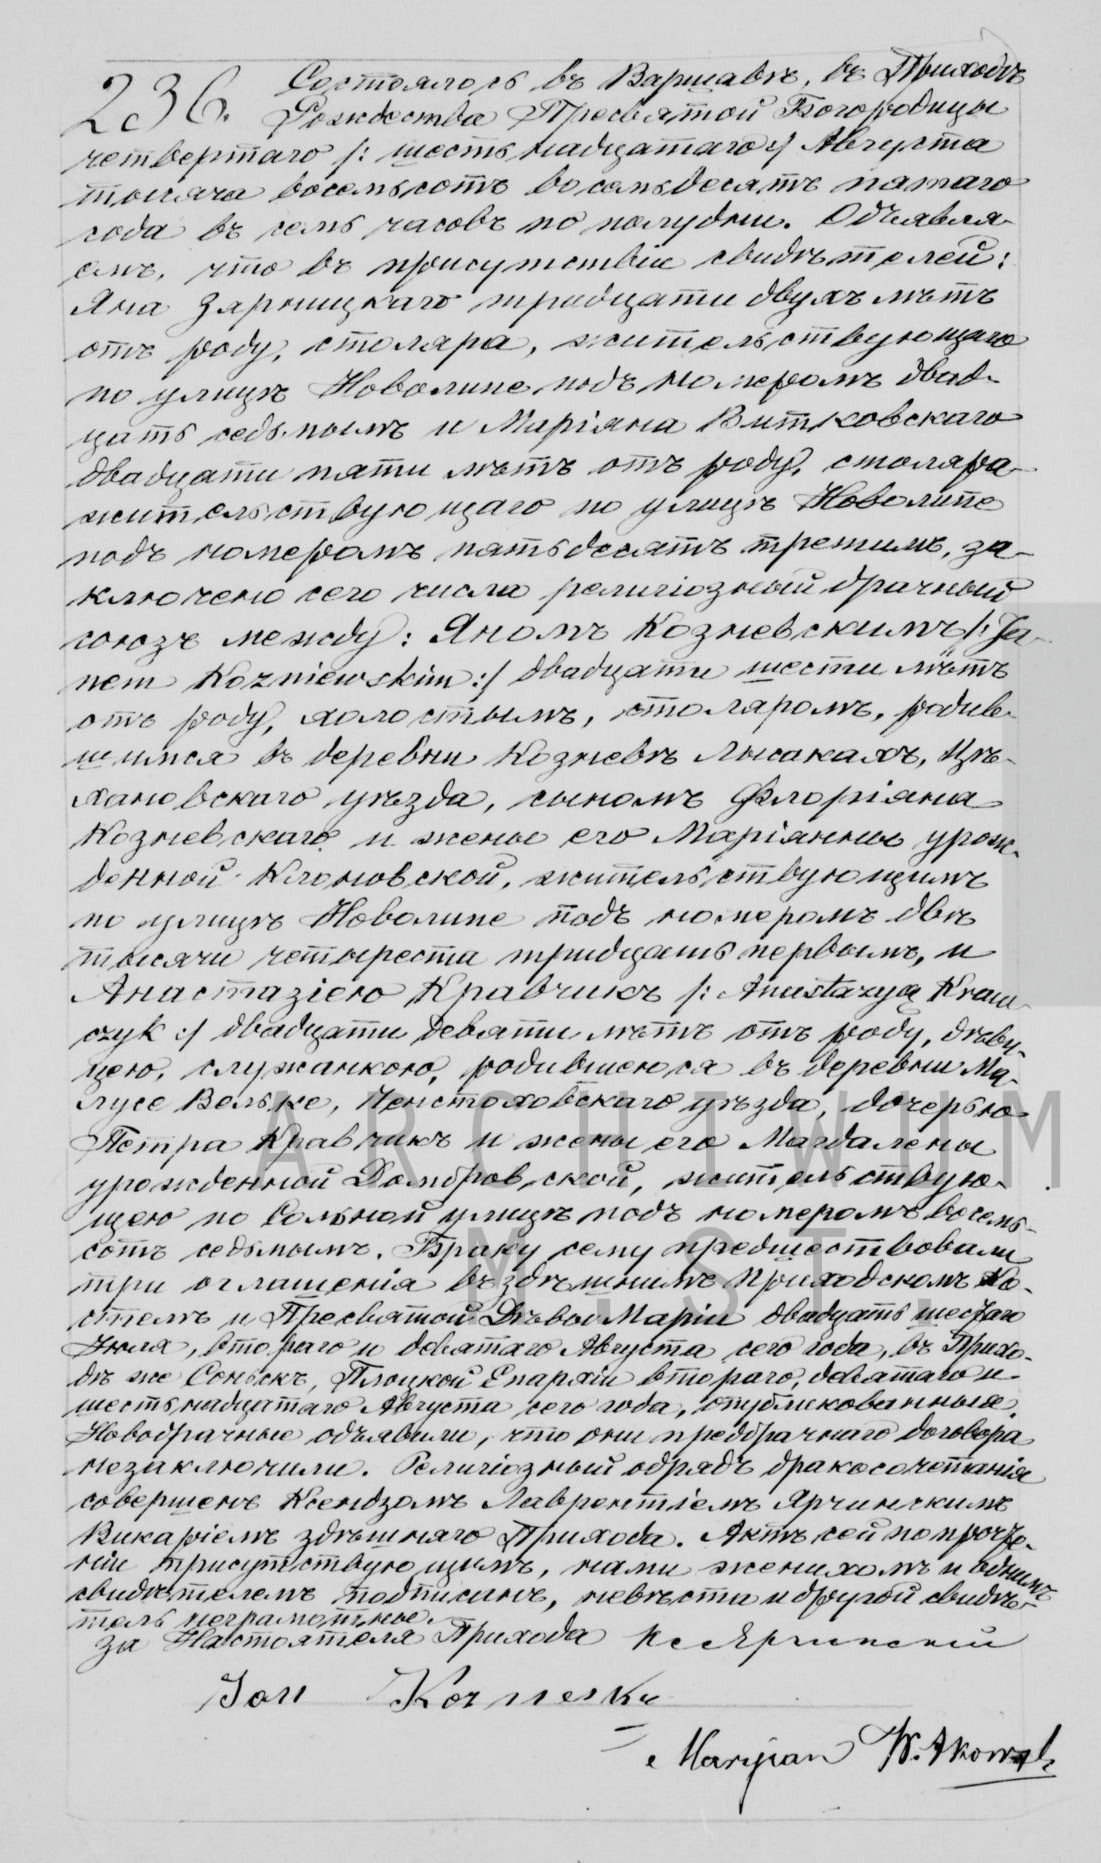 236. Состоялось въ Варшавѣ, въ Приходѣ
Рождества Пресвятой Богородицы
четвертаго /: шестьнадцатаго :/ Августа
тысяча восемьсотъ восемьдесятъ пятаго
года въ семь часовъ по полудни. Объявля-
емъ, что въ присутствіи свидѣтелей:
Яна Зарницкаго тридцати двухъ лѣтъ
отъ роду, столяра, жительствующаго
по улицѣ Новолипе подъ номеромъ двад-
цать седьмымъ и Маріяна Витковскаго
двадцати пяти лѣтъ отъ роду, столяра
жительствующаго по улицѣ Новолипе
подъ номеромъ пятьдесятъ третимъ, за-
ключено сего числа религіозный брачный
союзъ между: Яномъ Козневскимъ /: Ja-
nem Kozniewskim :/ двадцати шести лѣтъ
отъ роду, холостымъ, столяромъ, родив-
шимся въ деревни Козневѣ Лысакахъ, Цѣ-
хановскаго уѣзда, сыномъ Флоріяна
Козневскаго и жены его Маріянны урож-
денной Клоновской, жительствующимъ
по улицѣ Новолипе подъ номеромъ двѣ
тысячи четыреста тридцать первымъ, и
Анастазіею Кравчикъ /: Anastazyą Kraw-
czyk :/ двадцати девяти лѣтъ отъ роду, дѣви-
цею, служанкою, родившеюся въ деревни Ма-
лусе Вельке, Ченстоховскаго уѣзда, дочерью
Петра Кравчикъ и жены его Магдалены
урожденной Домбровской, жительствую-
щею по Сольной улицѣ подъ номеромъ восемь-
сотъ седьмымъ. Браку сему предшествовали
три оглашенія въ здѣшнимъ Приходскомъ Ко-
стелѣ и Пресвятой Дѣвы Маріи двадцать шестаго
Іюля, втораго и девятаго Августа сего года, въ Прихо-
дѣ же Соньскъ, Плоцкой Епархіи втораго, девятаго и
шестьнадцатаго Августа сего года, опубликованныя.
Новобрачные объявили, что они предбрачнаго договора
незаключили. Религіозный обрядъ бракосочетанія
совершенъ Ксендзомъ Лаврентіемъ Ярчинскимъ
Викаріемъ здѣшняго Прихода. Актъ сей по прочте-
ніи присутствующимъ, нами женихомъ и однимъ
свидѣтелемъ подписанъ, невѣста и другой свидѣ-
тель неграмотные.
За Настоятеля Прихода Кс Ярчинскій
Jan
Maryian Witkowski
ARCHIWUM
M. ST.